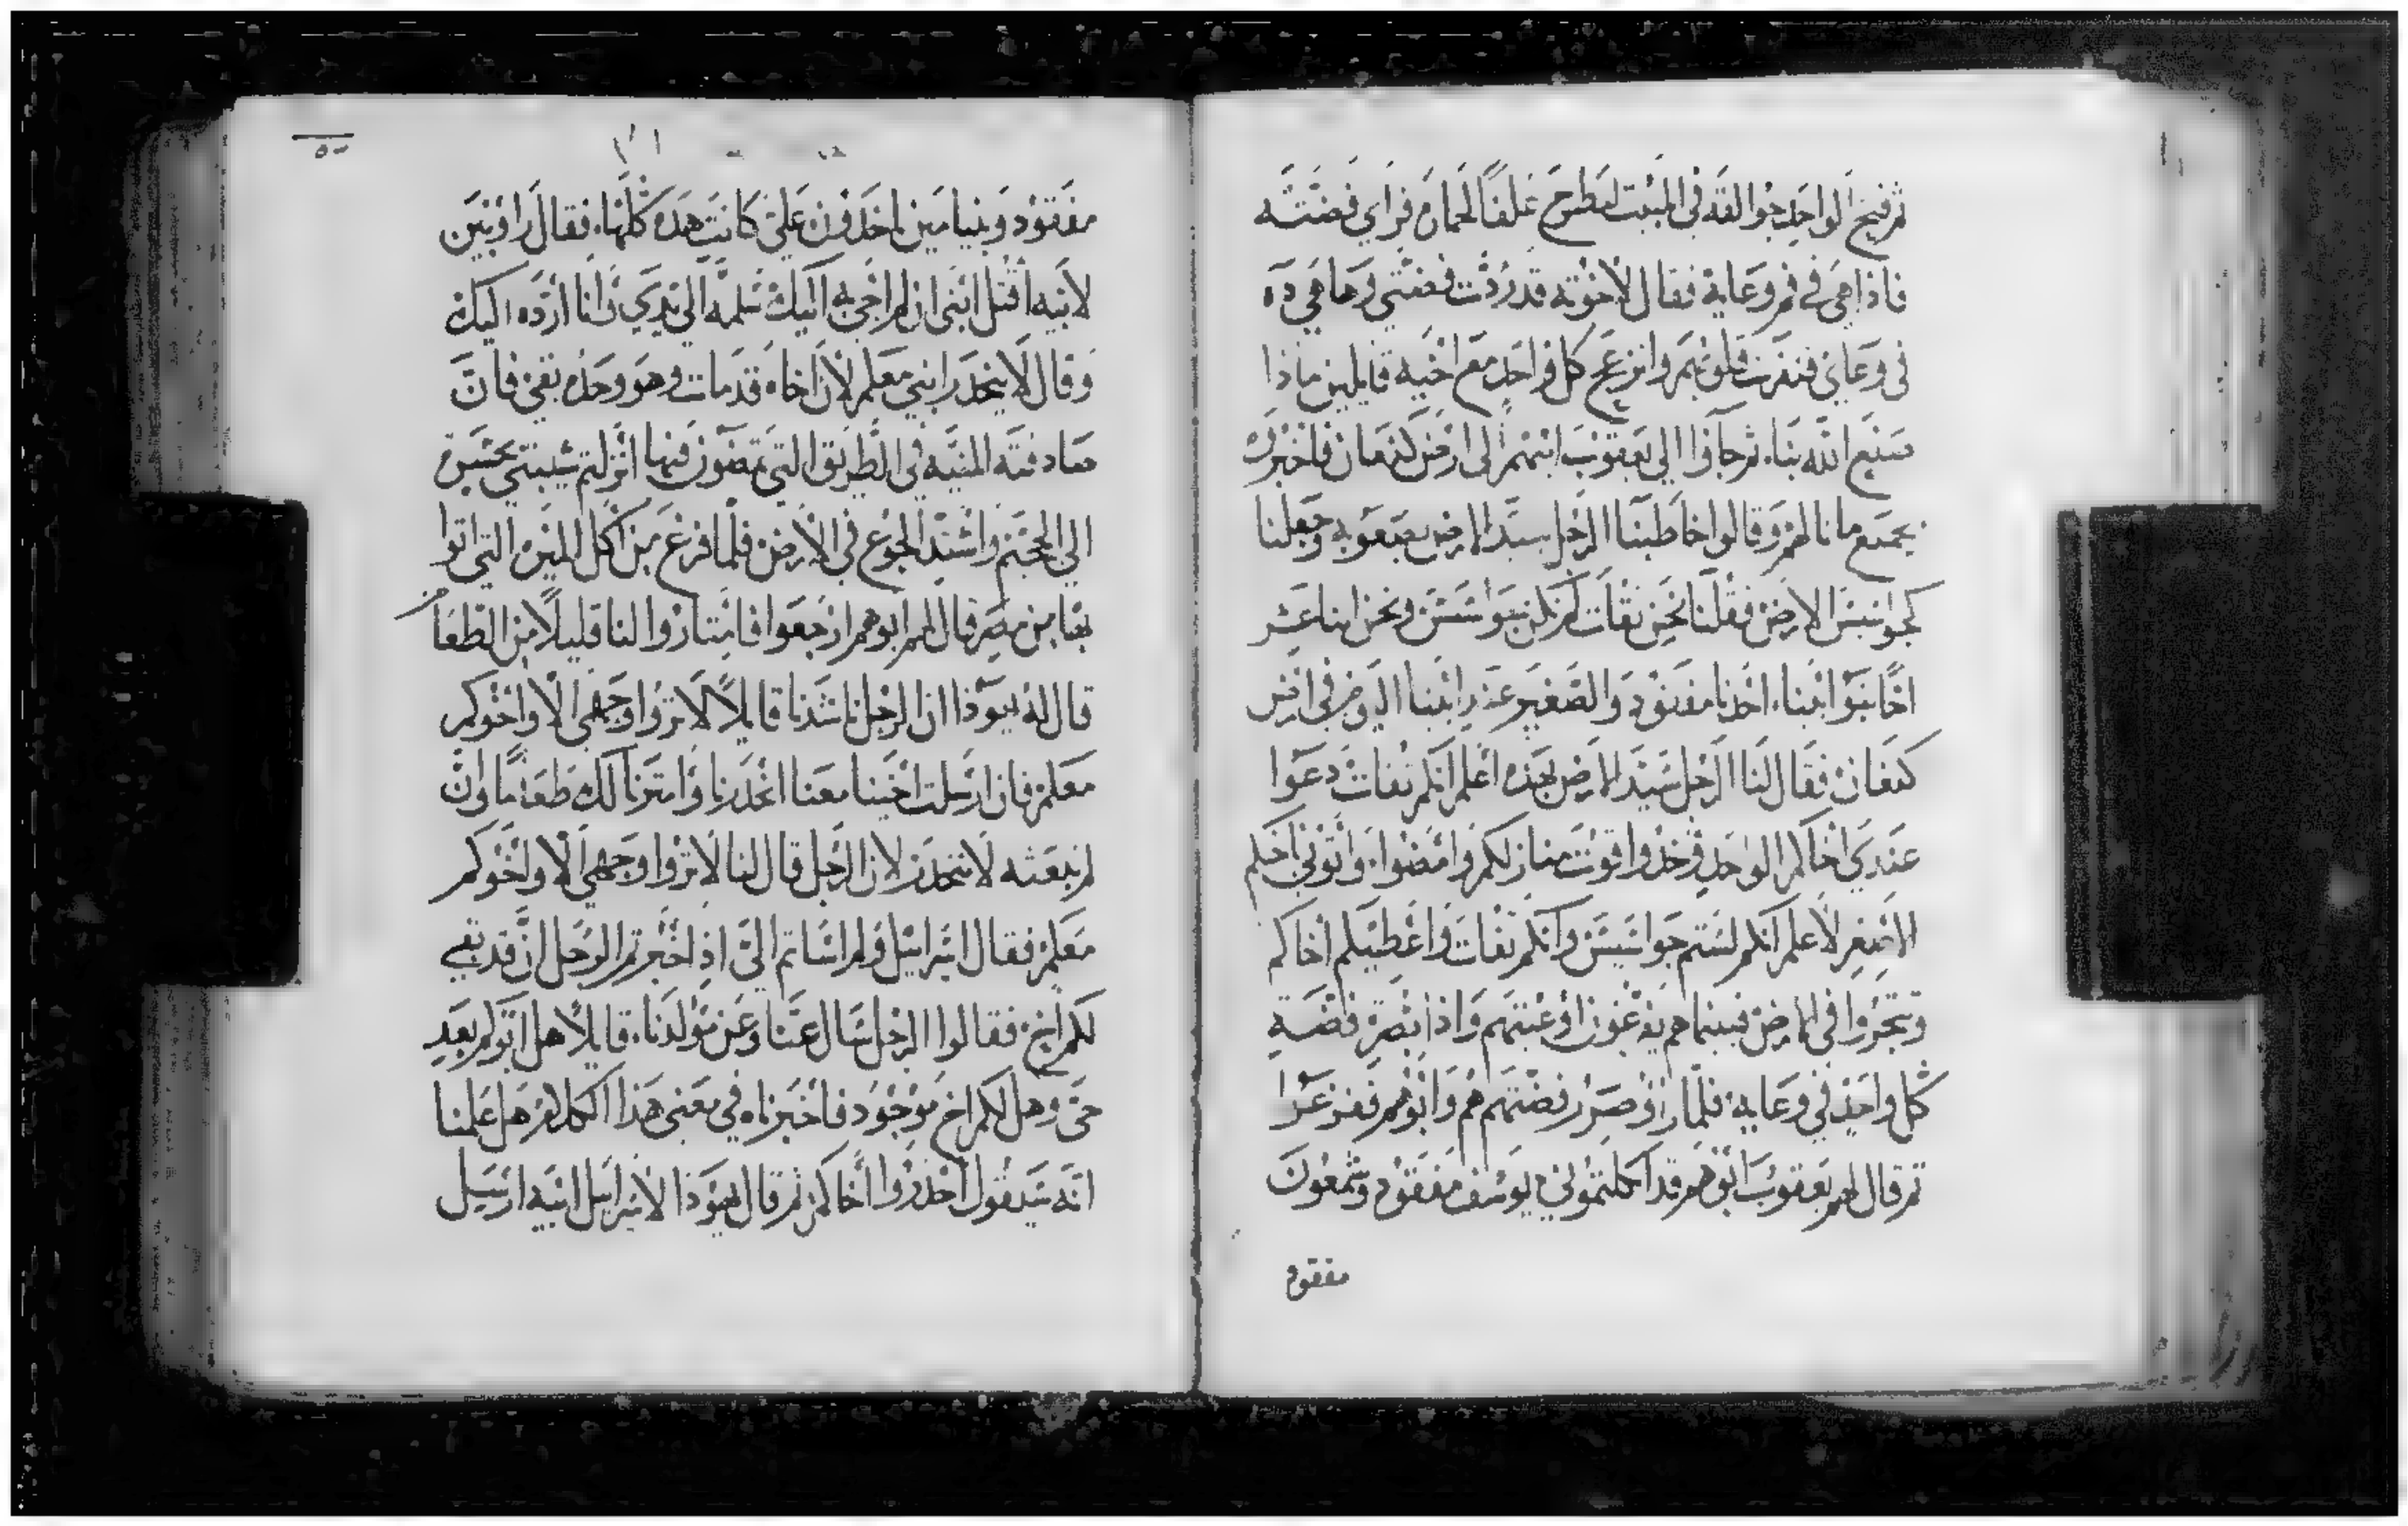 ثم فتح الواحد جوالقه في المبيت ليطرح علفًا لحماره فراي فضته
فاذا هي في فم وعايه فقال لاخوته قد ردت فضتي وها هي ده
في وعاي فنفرت قلوبهم وانزعج كل واحد مع اخيه قايلين ماذا
صنع الله بنا، ثم جآوا الي يعقوب ابيهم الي ارض كنعان فاخبروه
بجميع ما نالهم وقالوا خاطبنا الرجل سيد الارض بصعوبه وجعلنا
كجواسيس الارض فقلنا نحن ثقات لم نكن جواسيس ونحن اثنا عشر
اخًا بنوا ابينا، احدنا مفقود والصغير عند ابينا اليوم في ارض
كنعان فقال لنا الرجل سيد الارض بهذه اعلم انكم ثقات دعوا
عندي اخاكم الواحد وخذوا قوت منازلكم وامضوا، واتوني باخيكم
الاصغر لاعلم انكم لستم جواسيس وانكم ثقات واعطيكم اخاكم
وتتجروا في الارض فبينما هم يفرغون اوعيتهم واذا بصرة فضة
كل واحد في وعايه فلما راوا صرر فضتهم هم وابوهم ففزعوا
ثم قال لهم يعقوب ابوهم قد اثكلتموني يوسف مفقود وشمعون
مفقود
مفقود وبنيامين تاخذون علي كانت هذه كلها، فقال راوبين
لابيه اقتل ابني ان لم اجي به اليك سلمه الي يدي وانا ارده اليك
وقال لا ينحدر ابني معكم لان اخاه قد مات وهو وحده بقي فان
صادفته المنيه في الطريق التي تمضون فيها انزلتم شيبتي بحسرة
الي الجحيم واشتد الجوع في الارض فلما فرغ من اكل الميره التي اتوا
بها من مصر قال لهم ابوهم ارجعوا فامتاروا لنا قليلاً من الطعام
قال له يهوذا ان الرجل ناشدنا قايلاً لا تروا وجهي الا واخوكم
معكم فان ارسلت اخينا معنا انحدرنا وامترنا لك طعامًا وان
لم تبعثه لا ننحدر لان الرجل قال لنا لا تروا وجهي الا واخوكم
معكم فقال اسراييل ولم اساتم الي اذ اخبرتم الرجل ان قد بقي
لكم اخ، فقالوا الرجل سال عنا وعن مولدنا، قايلاً هل ابوكم بعد
حي وهل لكم اخ موجود فاخبرناه في معنى هذا الكلام هل علمنا
انه سيقول احدروا اخاكم ثم قال يهوذا لاسراييل ابيه ارسل